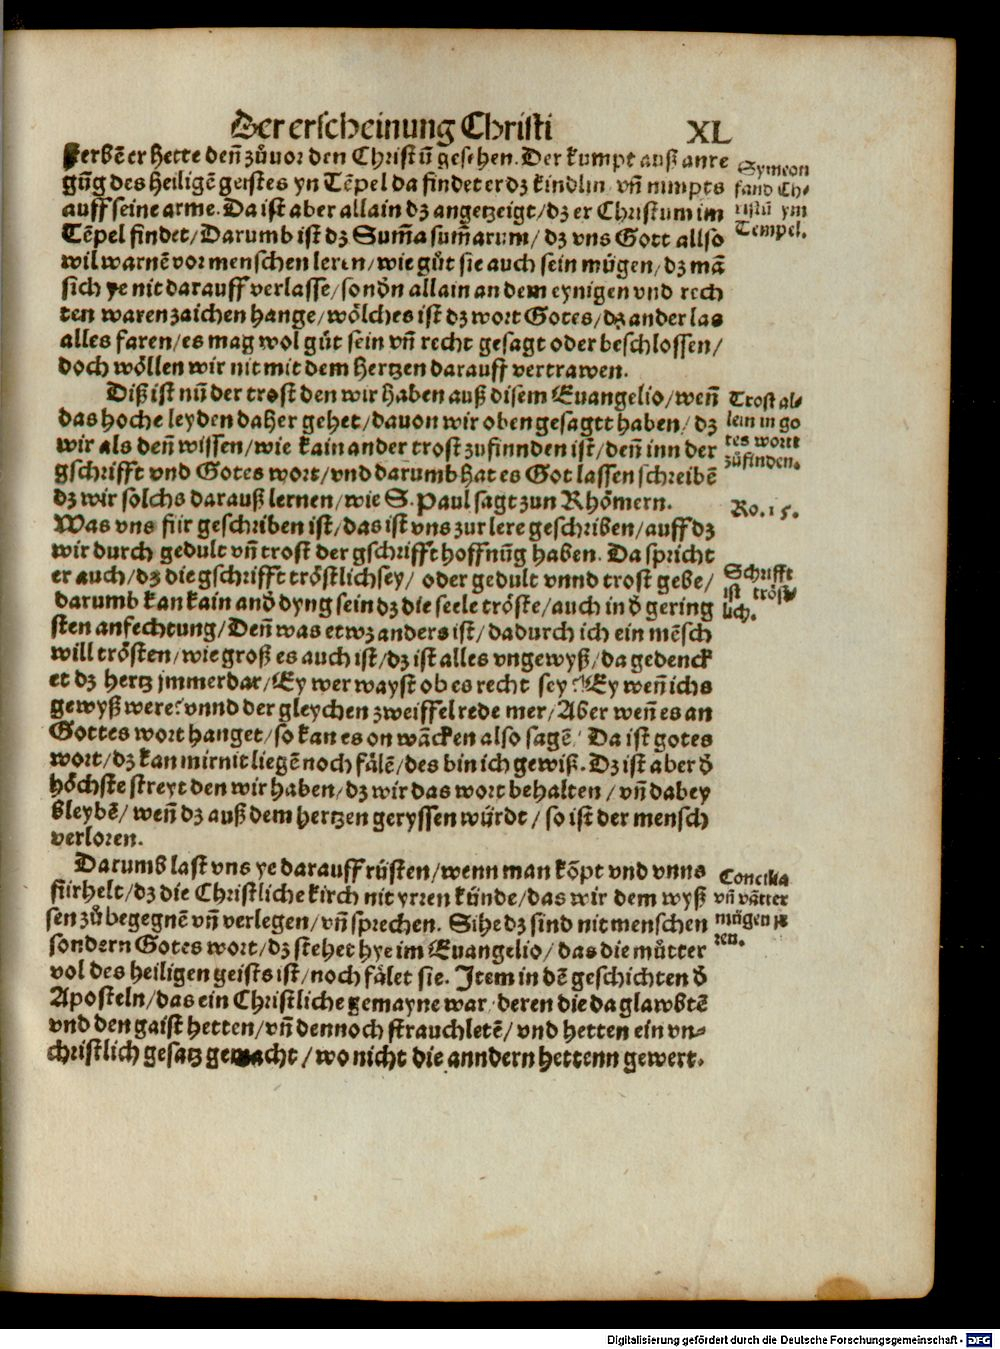 Der erscheinung Christi XL
sterbẽ er hette deñ zůuor den Christũ gesehen. Der kumpt auß anre
gũg des heiligẽ geistes yn Tẽpel da findet er dz kindlin vñ nimpts
auff seine arme. Da ist aber allain dz angetzeigt/ dz er Christum im
Tẽpel findet/ Darumb ist dz Sum̃a sum̃arum/ dz vns Gott allso
wil warnẽ vor menschen leren/ wie gůt sie auch sein mügen/ dz mã
sich ye nit darauff verlasse/ sonð̃n allain an dem eynigen vnd rech
ten waren zaichen hange/ wölches ist dz wort Gotes/ dz ander las
alles faren/ es mag wol gůt sein vñ recht gesagt oder beschlossen/
doch wöllen wir nit mit dem hertzen darauff vertrawen.
Diß ist nũ der trost den wir haben auß disem Euangelio/ weñ
das hoche leyden daher gehet/ dauon wir oben gesagtt haben/ dz
wir als deñ wissen/ wie kain ander trost zufinnden ist/ deñ inn der
gschrifft vnd Gotes wort/ vnd darumb hat es Got lassen schreibẽ
dz wir solchs darauß lernen/ wie S. Paul sagt zun Rhömern.
Was vns fiir geschriben ist/ das ist vns zur lere geschriben/ auff dz
wir durch gedult vñ trost der gschrifft hoffnũg haben. Da spricht
er auch/ dz die gschrifft tröstlich sey/ oder gedult vnnd trost gebe/
darumb kan kain anð dyng sein dz die seele tröste/ auch in ð gering
sten anfechtung/ Deñ was etwz anders ist/ dadurch ich ein mẽsch
will trösten/ wie groß es auch ist/ dz ist alles vngewyß/ da gedenck
et dz hertz jmmerdar/ Ey wer wayst ob es recht sey? Ey weñ ichs
gewyß were? vnnd der gleychen zweiffel rede mer/ Aber weñ es an
Gottes wort hanget/ so kan es on wãcken also sagẽ/ Da ist gotes
wort/ dz kan mir nit liegẽ noch fälẽ/ des bin ich gewiß. Dz ist aber ð
höchste streyt den wir haben/ dz wir das wort behalten/ vñ dabey
bleybẽ/ weñ dz auß dem hertzen geryssen würdt/ so ist der mensch
verloren.
Darumb last vns ye darauff rüsten/ wenn man kõpt vnd vnns
fürhelt/ dz die Christliche kirch nit yrren künde/ das wir dem wyß
sen zů begegnẽ vñ verlegen/ vñ sprechen. Sihe dz sind nit menschen
sondern Gotes wort/ dz stehet hye im Euangelio/ das die můtter
vol des heiligen geists ist/ noch fälet sie. Item in dẽ geschichten ð
Aposteln/ das ein Christliche gemayne war/ deren die da glawbtẽ
vnd den gaist hetten/ vñ dennoch strauchletẽ/ vnd hetten ein vn-
christlich gesatz gemacht/ wo nicht die anndern hettenn gewert.
Symeon
fand Ch-
ristũ ym
Tempel.
Trost al-
lein in go
tes wortt
zůfinden.
Ro. 15.
Schrifft
ist tröst-
lich.
Concilia
vñ vätter
mügen jr
ren.
Digitalisierung gefördert durch die Deutsche Forschungsgemeinschaft - DFG